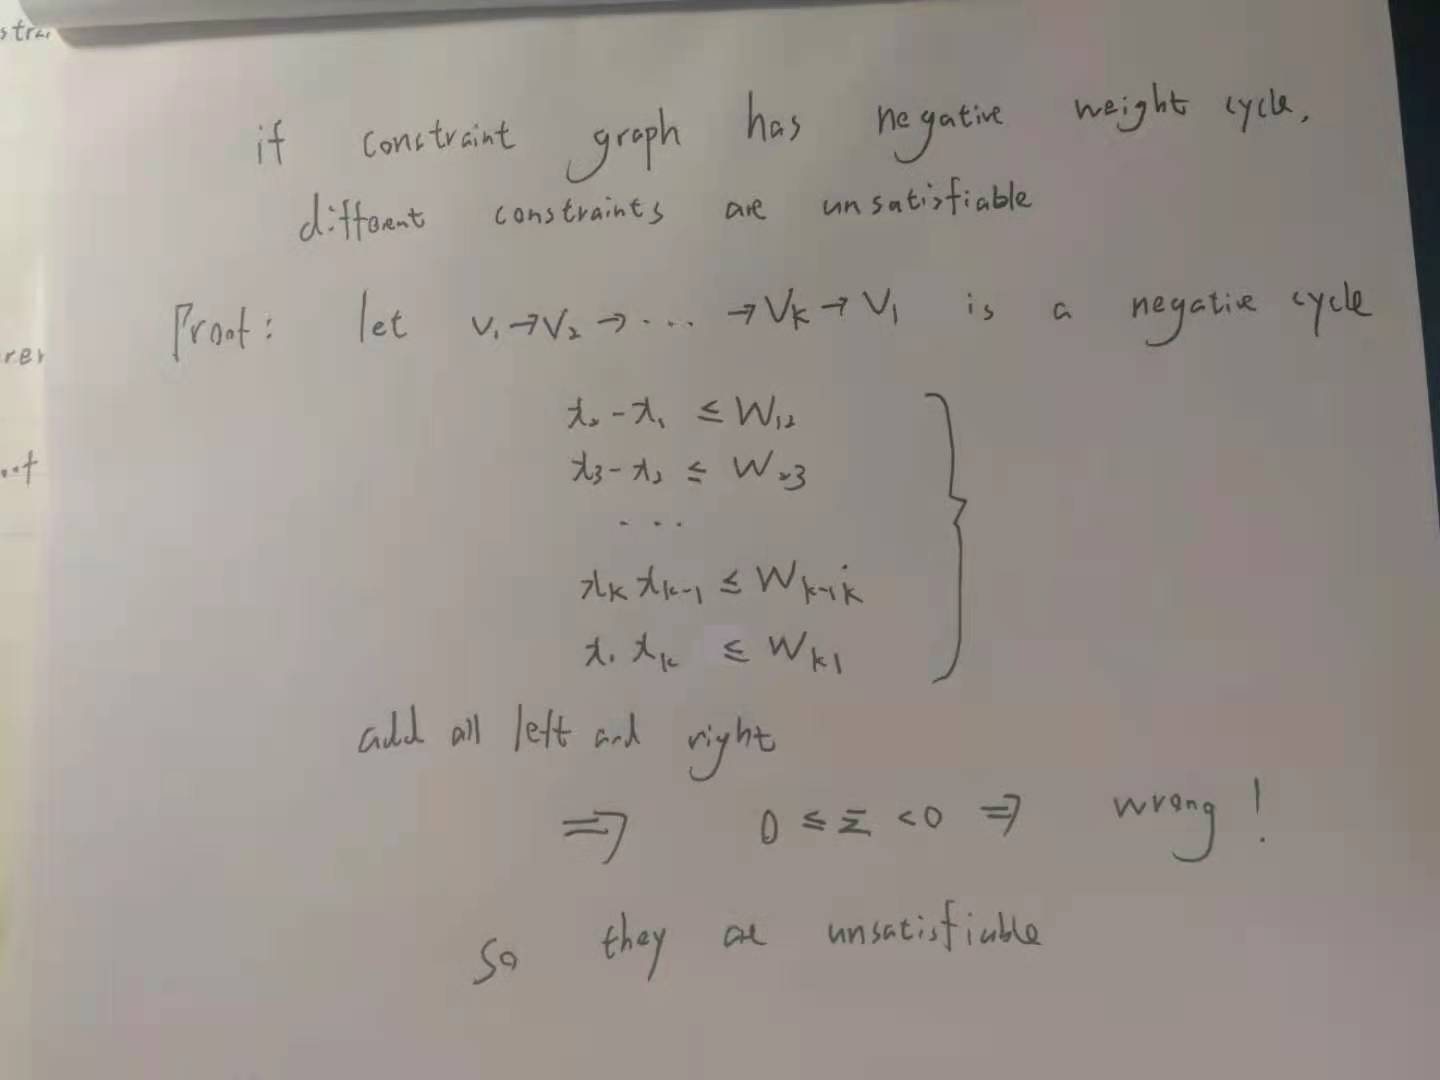 stra
if constraint graph has negative weight cycle,
different constraints are unsatisfiable
Proof: let v₁→v₂→...→Vₖ→V₁ is a negative cycle
x₂-x₁ ≤ W₁₂
x₃-x₂ ≤ W₂₃
...
xₖ xₖ₋₁ ≤ Wₖ₋₁ₖ
x₁ xₖ ≤ Wₖ₁
add all left and right
⇒ 0 ≤ Σ < 0 ⇒ wrong!
So they are unsatisfiable